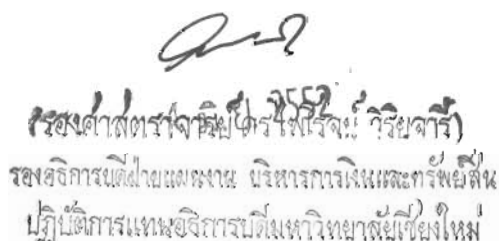 (รองศาสตราจารย์ ดร.ไพโรจน์ วิริยจารี)
รองอธิการบดีฝ่ายแผนงาน บริหารการเงินและทรัพย์สิน
ปฏิบัติการแทนอธิการบดีมหาวิทยาลัยเชียงใหม่